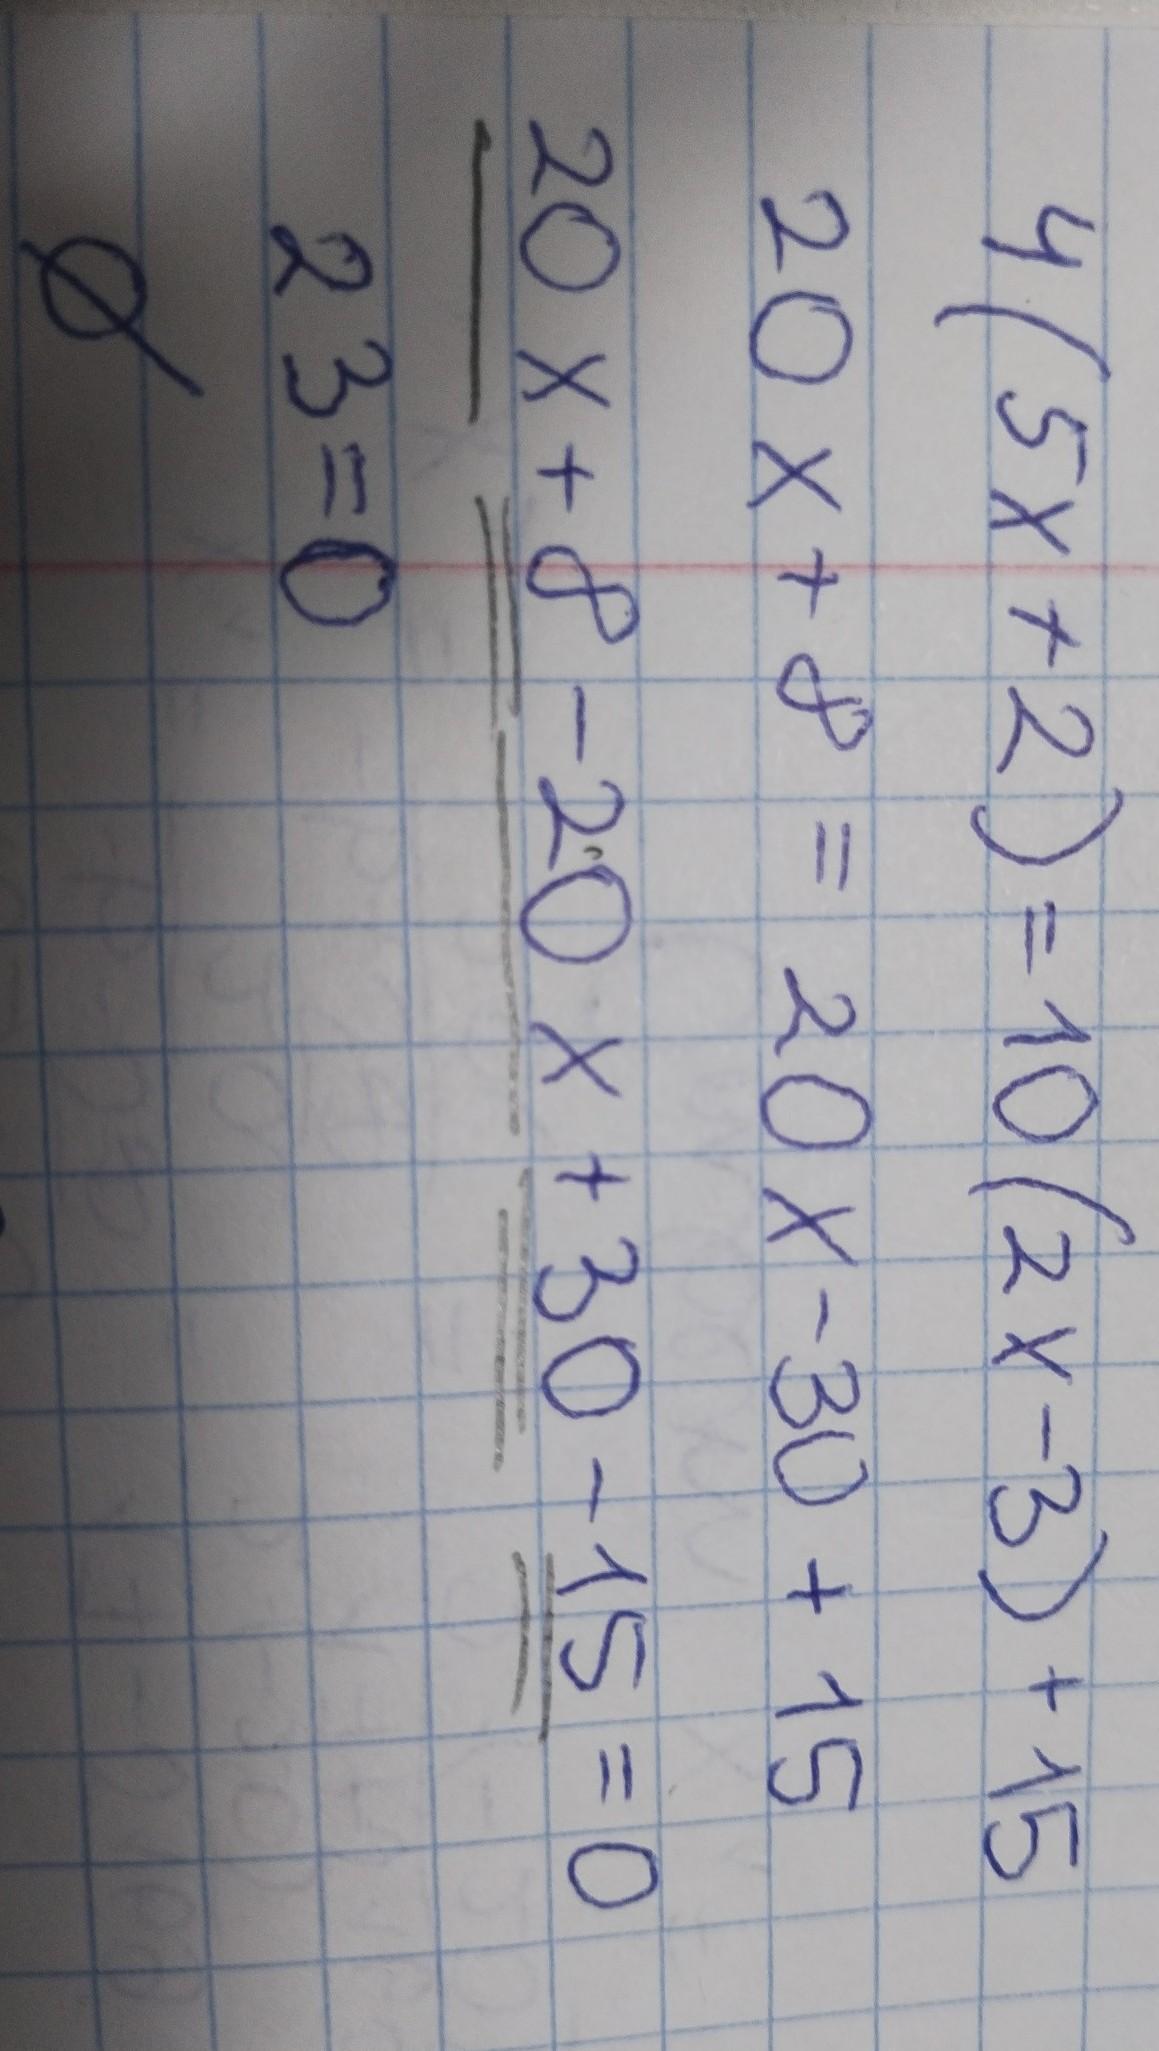 4(5x+2)=10(2x-3)+15
20x+8=20x-30+15
20x+8-20x+30-15=0
23=0
∅